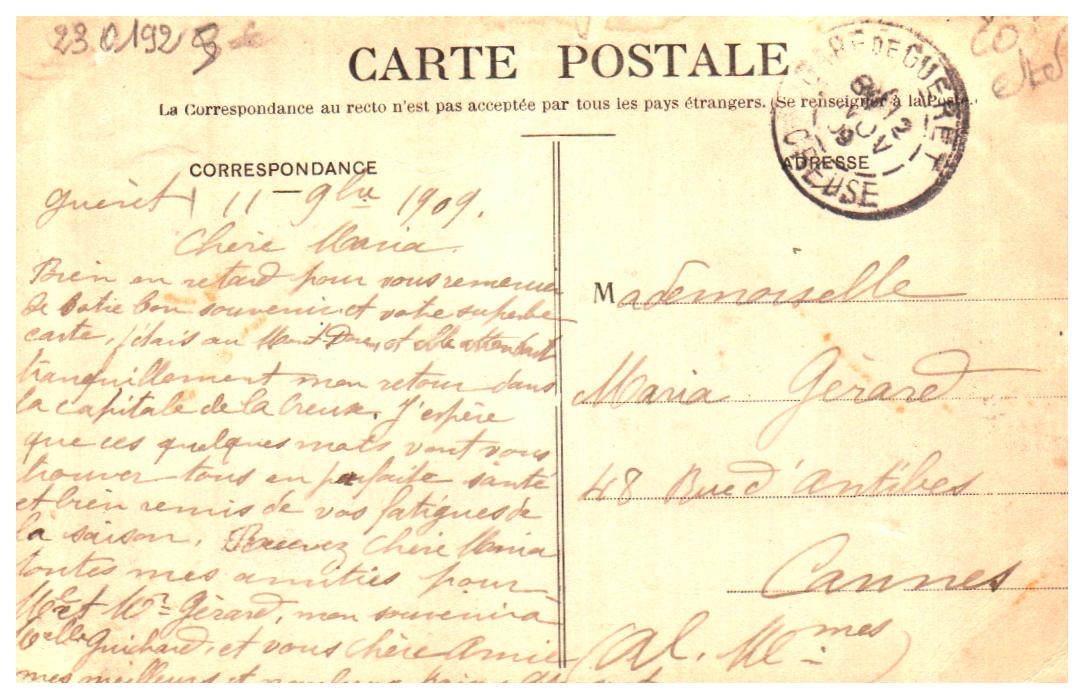 23 0 192
CARTE POSTALE
La Correspondance au recto n'est pas acceptée par tous les pays étrangers. (Se renseigner à la Poste.)
GARE DE GUERET
CREUSE
CORRESPONDANCE
ADRESSE
Guéret 11 9bre 1909.
Chère Maria
Bien en retard pour vous remercier
de votre bon souvenir et votre superbe
carte, j'étais au Mont-Dore, et elle attendait
tranquillement mon retour dans
la capitale de la Creuse. J'espère
que ces quelques mots vont vous
trouver tous en parfaite santé
et bien remis de vos fatigues de
la saison. Recevez Chère Maria
toutes mes amitiés pour
Mr et Me Gérard, mon souvenir à
Melle Guichard, et vous chère Amie
mes meilleurs et
Mademoiselle
Maria Gérard
48 Rue d'Antibes
Cannes
(Al. Mmes)